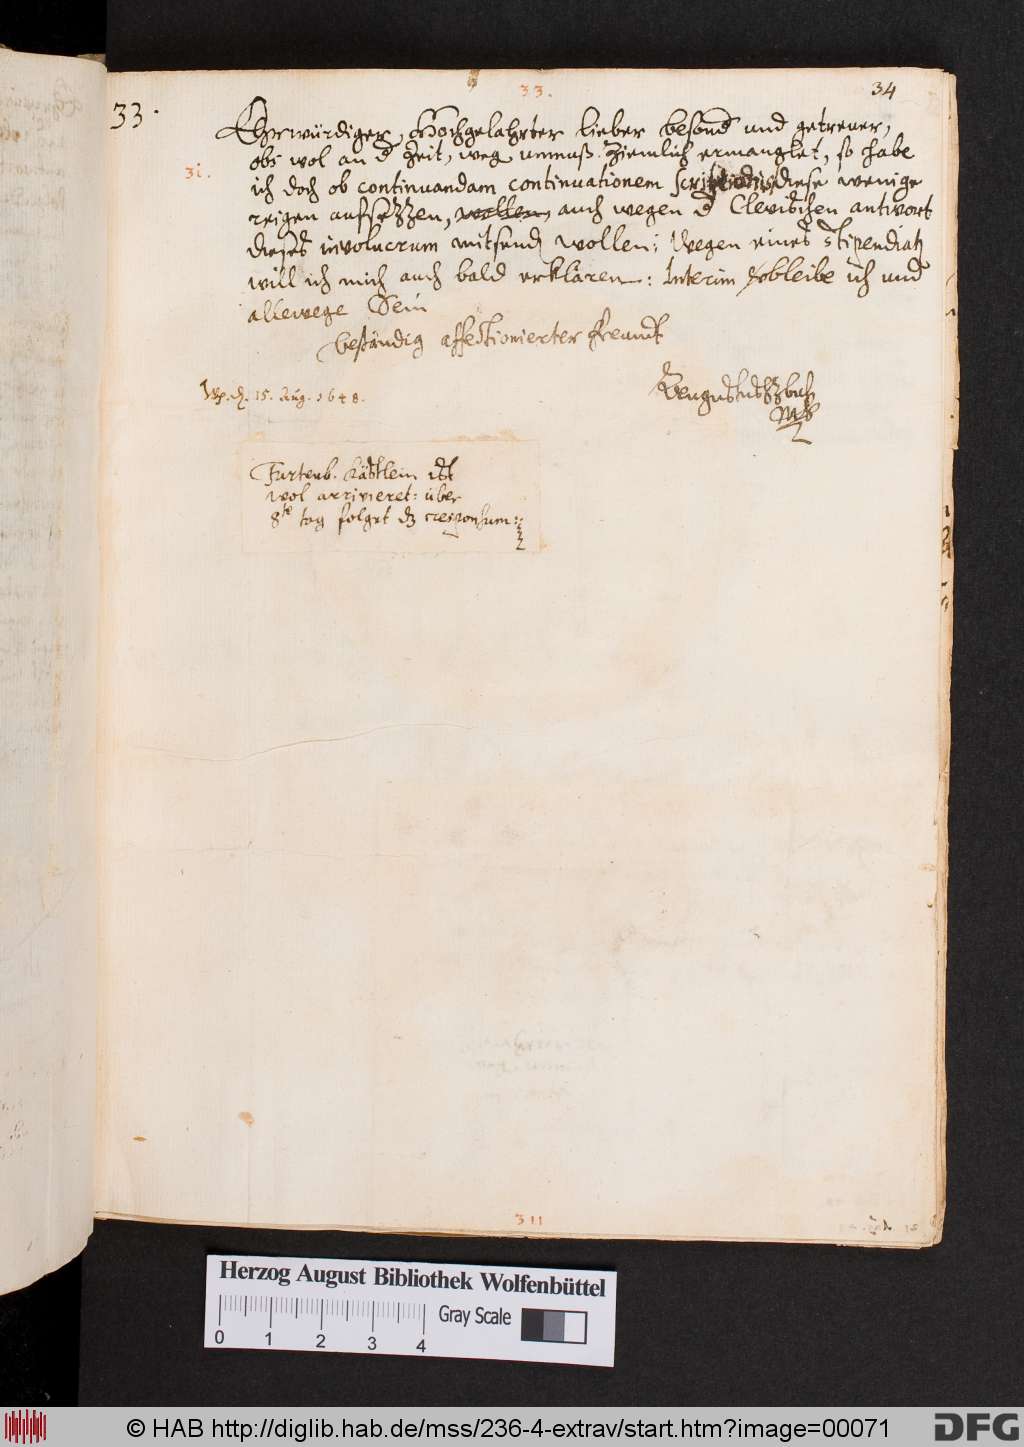 33.
34
33.
Ehrwürdiger, Hochgelahrter lieber besond und getreuer,
obs wol an d Zeit, weg unmuß ziemlich ermanglet, so habe
31.
ich doch ob continuandam continuationem diese wenige
reigen aufsezzen, wollen, auch wegen d Clevischen antwort
dieses involucrum mitsend wollen; Wegen eines stipendiat
will ich mich auch bald erklären: Interim bleibe ich und
allewege Dein
beständig affectionierter freundt
15. Aug. 1648.
Furtenb. kästlein ist
wol arrivieret: über
8te tag folget dz responsum:
311
Herzog August Bibliothek Wolfenbüttel
Gray Scale
0 1 2 3 4
© HAB http://diglib.hab.de/mss/236-4-extrav/start.htm?image=00071
DFG